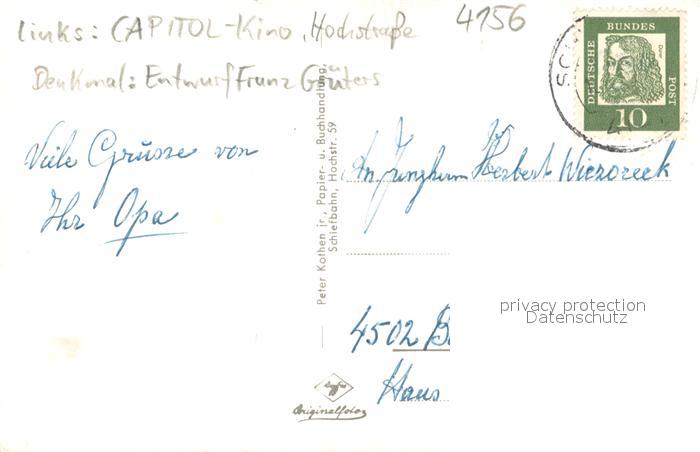 links: CAPITOL-Kino, Hochstraße
4156
Denkmal: Entwurf Franz Güters
DEUTSCHE BUNDES POST
Dürer
10
Viele Grüsse von
Ihr Opa
Peter Kothen jr., Papier- u. Buchhandlung,
Schiefbahn, Hochstr. 59
An Jungherrn Herbert Wiezoreck
privacy protection
Datenschutz
4502 B
Haus
Agfa
Originalfoto